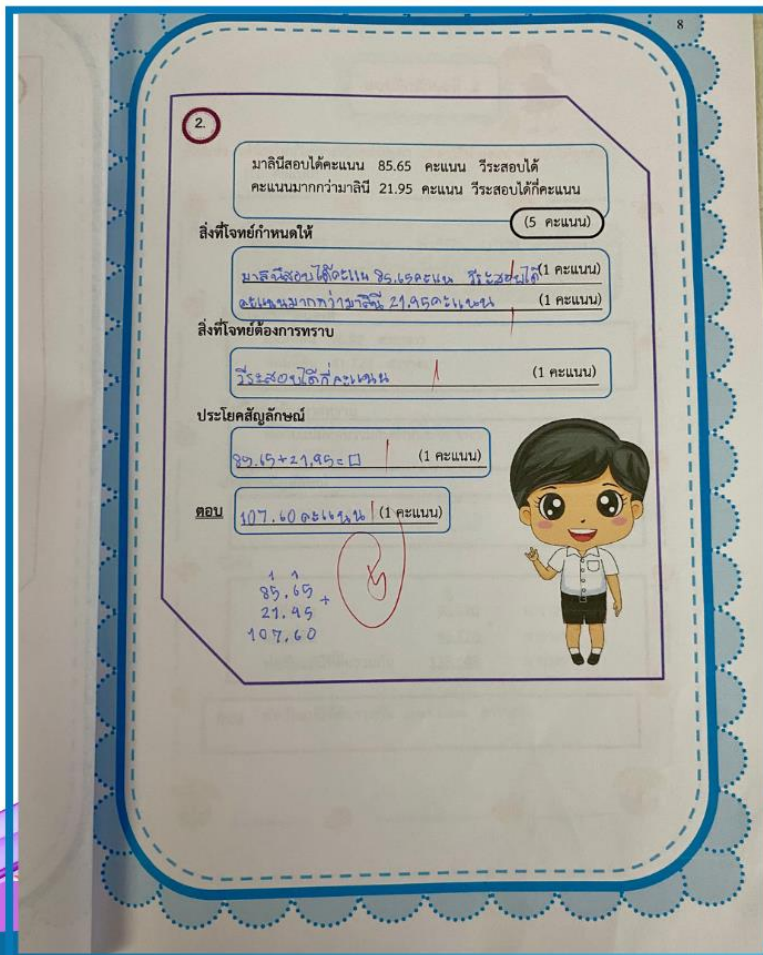 8
2.
มาลินีสอบได้คะแนน 85.65 คะแนน วีระสอบได้
คะแนนมากกว่ามาลินี 21.95 คะแนน วีระสอบได้กี่คะแนน
(5 คะแนน)
สิ่งที่โจทย์กำหนดให้
มาลินีสอบได้คะแนน 85.65คะแนน วีระสอบได้ (1 คะแนน)
คะแนนมากกว่ามาลินี 21.95คะแนน (1 คะแนน)
สิ่งที่โจทย์ต้องการทราบ
วีระสอบได้กี่คะแนน (1 คะแนน)
ประโยคสัญลักษณ์
85.65+21.95=□ (1 คะแนน)
ตอบ 107.60 คะแนน (1 คะแนน)
1 1
85.65 +
21.95
107.60
5